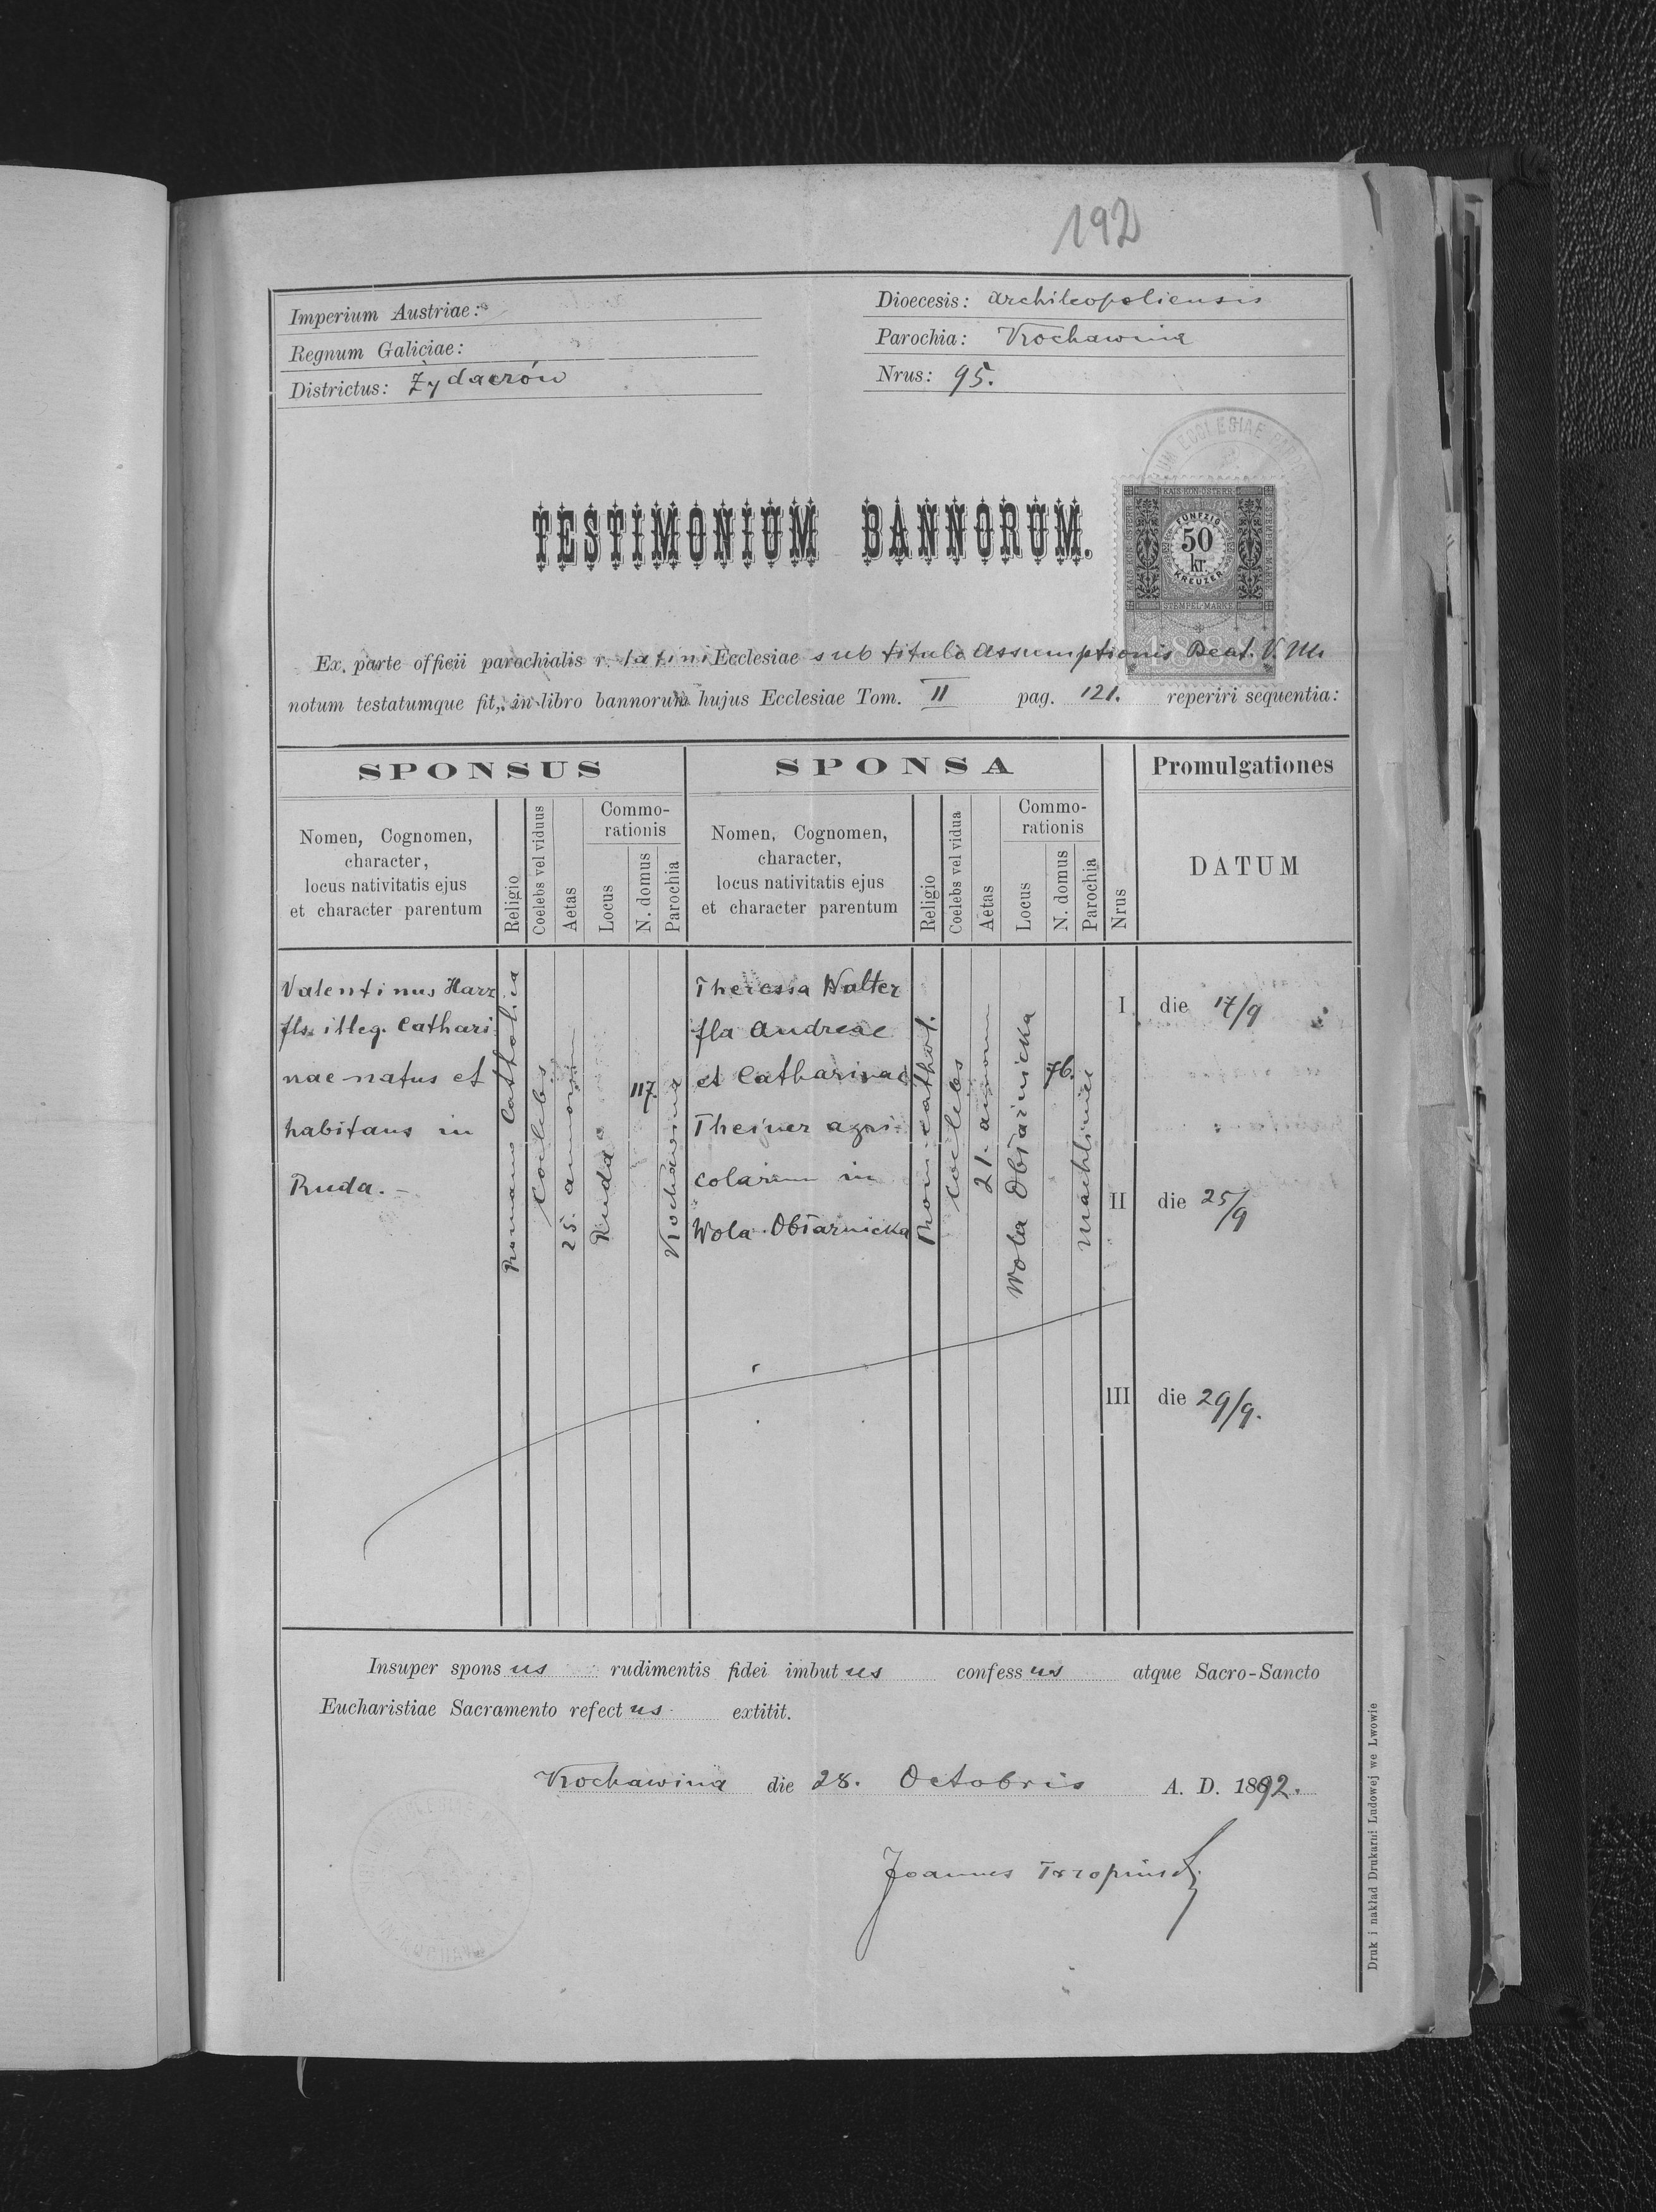 192
Imperium Austriae:
Regnum Galiciae:
Districtus: Żydaczów
Dioecesis: Archileopoliensis
Parochia: Kochawina
Nrus: 95.
ECCLESIAE
TESTIMONIUM BANNORUM.
KAIS.KÖN.ÖSTERR.
FÜNFZIG
50
kr.
KREUZER
STEMPEL-MARKE
Ex parte officii parochialis r. latini Ecclesiae sub titulo Assumptionis Beat. V. M.
notum testatumque fit, in libro bannorum hujus Ecclesiae Tom. II pag. 121. reperiri sequentia:
SPONSUS
Nomen, Cognomen,
character,
locus nativitatis ejus
et character parentum
Religio
Coelebs vel viduus
Aetas
Commo-
rationis
Locus
N. domus
Parochia
SPONSA
Nomen, Cognomen,
character,
locus nativitatis ejus
et character parentum
Religio
Coelebs vel vidua
Aetas
Commo-
rationis
Locus
N. domus
Parochia
Nrus
Promulgationes
DATUM
Valentinus Harz
fls. illeg. Cathari
nae natus et
habitans in
Ruda. –
Romano Catholica
Coelebs
25. annorum
Ruda
117.
Kochawina
Theresia Walter
fla Andreae
et Catharinae
Theiner agri-
colarum in
Wola Obłaznicka
Rom. cathol.
Coelebs
21. annorum
Wola Obłaznicka
76.
Machliniec
I die 17/9
II die 25/9
III die 29/9.
Insuper sponsus rudimentis fidei imbutus confessus atque Sacro-Sancto
Eucharistiae Sacramento refectus extitit.
Kochawina die 28. Octobris A. D. 1892.
Joannes
Druk i nakład Drukarni Ludowej we Lwowie